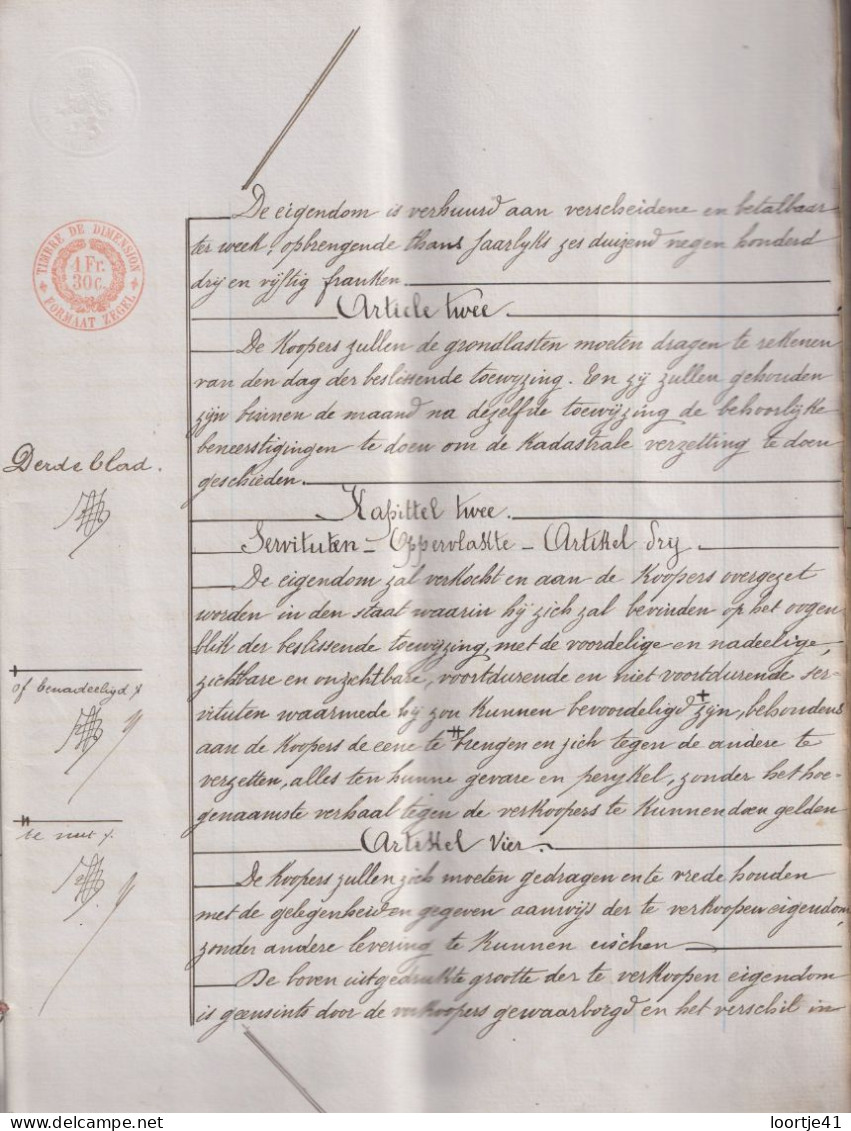 TIMBRE DE DIMENSION
1 Fr.
30 c.
FORMAAT ZEGEL
De eigendom is verhuurd aan verscheidene en betalbaar
ter week, opbrengende thans Jaarlyks zes duizend negen honderd
dry en vyftig franken.
Article twee.
De Koopers zullen de grondlasten moeten dragen te rekenen
van den dag der beslissende toewyzing. En zy zullen gehouden
zyn binnen de maand na dezelfde toewyzing de behoorlyke
beneerstigingen te doen om de Kadastrale verzetting te doen
geschieden.
Derde blad.
Kapittel twee.
Servituten - Oppervlakte - Artikel dry.
De eigendom zal verkocht en aan de Koopers overgezet
worden in den staat waarin hy zich zal bevinden op het oogen
blik der beslissende toewyzing, met de voordelige en nadeelige,
zichtbare en onzichtbare, voortdurende en niet voortdurende ser-
vituten waarmede hy zou Kunnen bevoordeligd + zyn, behoudens
of benadeeligd x
aan de Koopers de eene te # brengen en zich tegen de andere te
verzetten, alles ten hunne gevare en perykel, zonder het hoe-
genaamste verhaal tegen de verkoopers te Kunnen doen gelden
te nut x.
Artikel vier.
De Koopers zullen zich moeten gedragen en te vrede houden
met de gelegenheid en gegeven aanwys der te verkoopen eigendom,
zonder andere levering te Kunnen eischen
De boven uitgedrukte grootte der te verkoopen eigendom
is geensints door de verkoopers gewaarborgd en het verschil in
loortje41